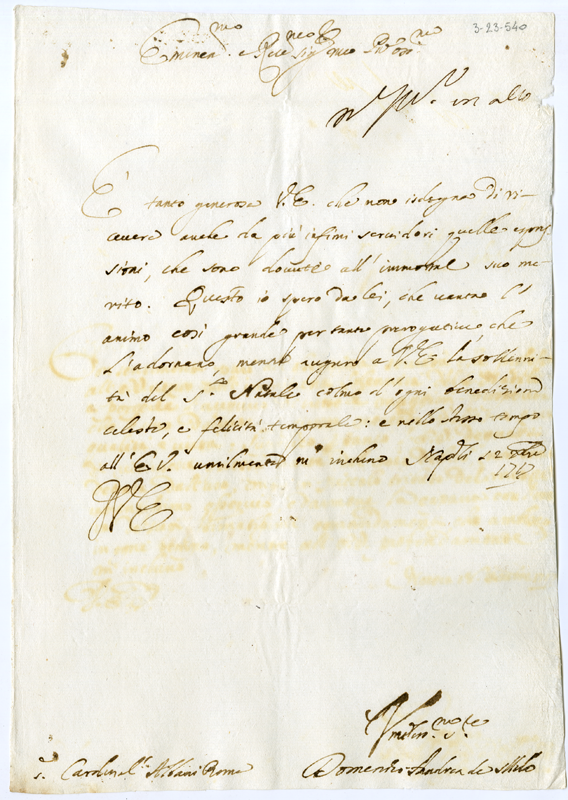 3-23-540
Eminen.mo e Rev.mo Sig.re mio P.ron
in alto
È tanto generosa V.E. che non isdegna di ri-
cevere anche da più infimi servidori quelle espres-
sioni, che sono dovute all'immortal suo me-
rito. Questo io spero da lei, che vanta l'
animo così grande per tante prerogative, che
l'adornano, mentre auguro a V.E. la sollenni-
tà del S. Natale colmo d'ogni benedizione
celeste, e felicità temporale: e nello stesso tempo
all'E.V. umilmente m'inchino Napoli 12 Xbre
V.E.
S. Cardinal Albani Roma
Domenico Andrea de Milo